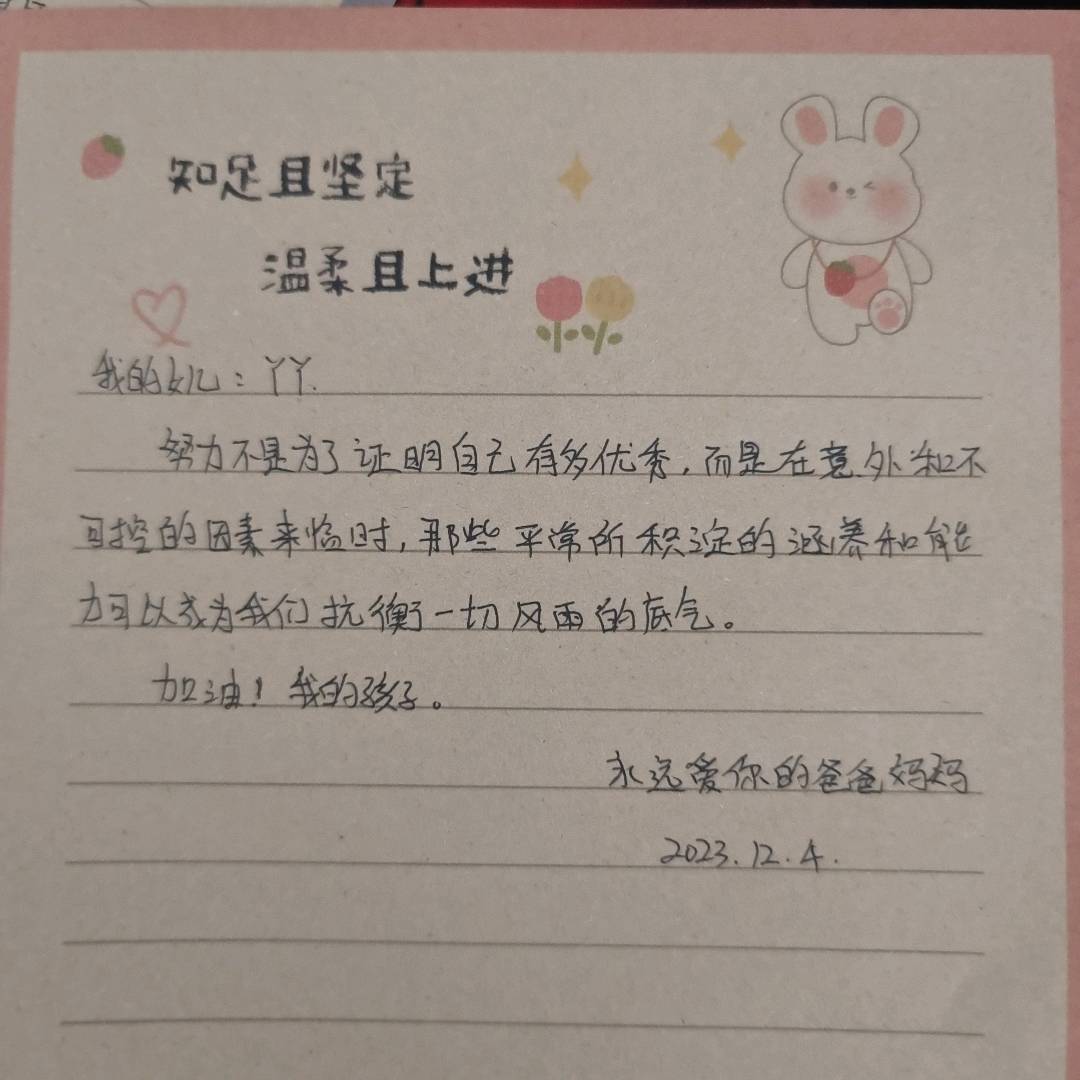 知足且坚定
温柔且上进
我的女儿：丫丫.
努力不是为了证明自己有多优秀，而是在意外和不
可控的因素来临时，那些平常所积淀的涵养和能
力可以成为我们抗衡一切风雨的底气。
加油！我的孩子。
永远爱你的爸爸妈妈
2023.12.4.